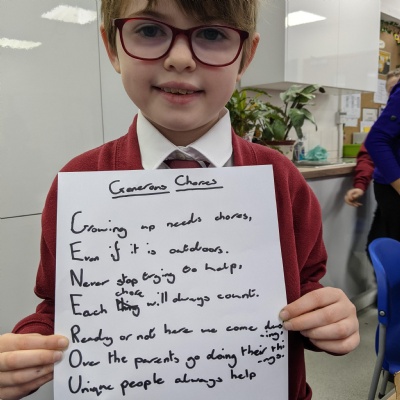 Generous Chores
Growing up needs chores,
Even if it is outdoors.
Never stop trying to help,
Each chore will always count.
Ready or not here we come doing
Over the parents go doing their things.
Unique people always help